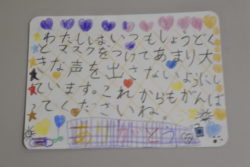 わたしはいつもしょうどく
とマスクをつけてあまり大
きな声を出さないようにし
ています。これからもがんば
ってくださいね。
とう